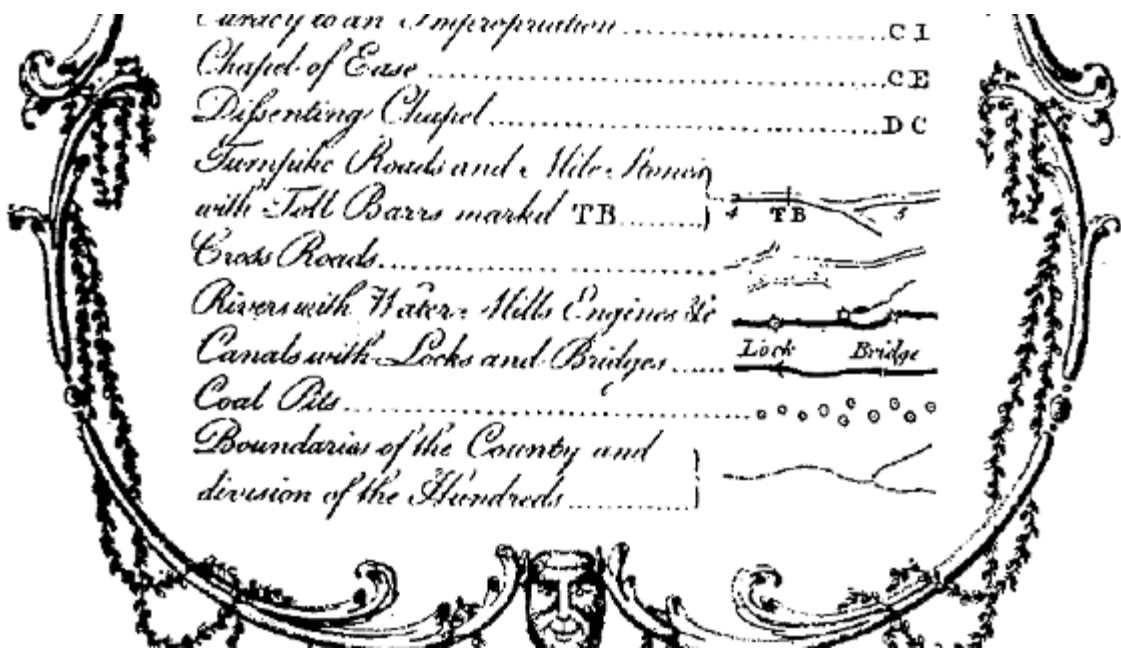 Curacy to an Impropriation ........................ C I
Chapel of Ease ........................ C E
Dissenting Chapel ........................ D C
Turnpike Roads and Mile Stones
with Toll Barrs marked TB ........ 4 TB 5
Cross Roads ........................
Rivers with Water Mills Engines &c
Canals with Locks and Bridges ...... Lock Bridge
Coal Pits ........................
Boundaries of the County and
division of the Hundreds ............